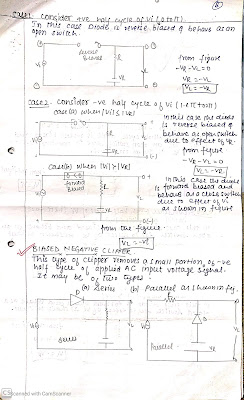 Case1. Consider +ve half cycle of Vi (0 to π)
In this case Diode is reverse biased & behave as an
open switch.
from figure
-VR - VL = 0
VR = -VL
VL = -VR
Case 2. Consider -ve half cycle of Vi (π to 2π)
case (a) when |Vi| < |VR|
In this case the diode
is reverse biased &
behave as open switch
due to effect of VR.
from figure
-VR - VL = 0
VL = -VR
case (b) when |Vi| > |VR|
In this case the diode
is forward biased and
behave as a close switch
due to effect of Vi
as shown in figure
from the figure
VL = -VR
BIASED NEGATIVE CLIPPER
This type of clipper removes a small portion of -ve
half cycle of applied AC input voltage signal.
It may be of two types.
(a) Series (b) Parallel as shown in fig.
D
Series
Parallel
CS Scanned with CamScanner